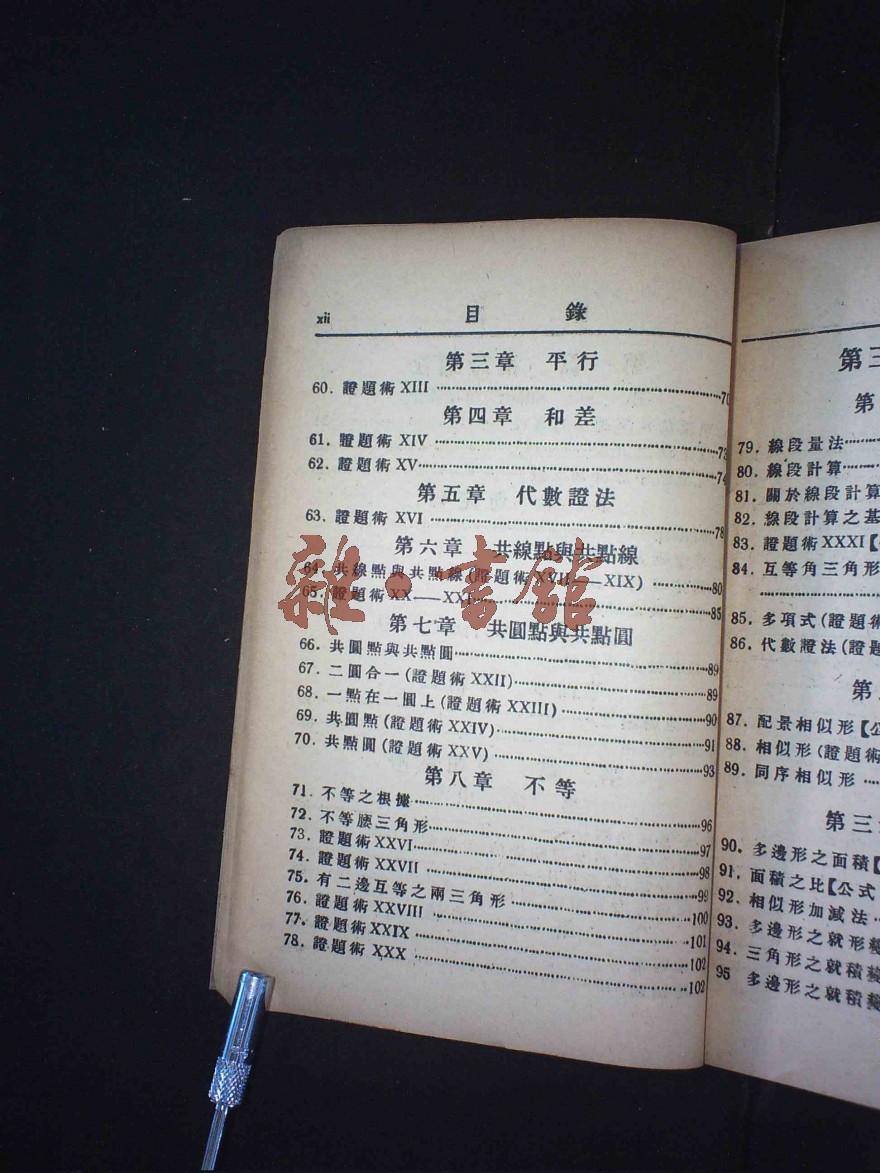 xii 目 錄
第三章 平行
60. 證題術 XIII ……70
第四章 和差
61. 證題術 XIV ……73
62. 證題術 XV……74
第五章 代數證法
63. 證題術 XVI ……78
第六章 共線點與共點線
64. 共線點與共點線(證題術 XVII——XIX) ……80
65. 證題術 XX——XXI……85
第七章 共圓點與共點圓
66. 共圓點與共點圓……89
67. 二圓合一(證題術 XXII)……89
68. 一點在一圓上(證題術 XXIII)……90
69. 共圓點(證題術 XXIV)……91
70. 共點圓(證題術 XXV)……93
第八章 不等
71. 不等之根據……96
72. 不等腰三角形……97
73. 證題術 XXVI……98
74. 證題術 XXVII……99
75. 有二邊互等之兩三角形……100
76. 證題術 XXVIII……101
77. 證題術 XXIX……102
78. 證題術 XXX……102
雜·書館
第三
第
79. 線段量法……
80. 線段計算……
81. 關於線段計算
82. 線段計算之基
83. 證題術 XXXI【
84. 互等角三角形
85. 多項式(證題術
86. 代數證法(證題
第
87. 配景相似形【公
88. 相似形(證題術
89. 同序相似形……
第三
90. 多邊形之面積【
91. 面積之比【公式
92. 相似形加減法……
93. 多邊形之就形變
94. 三角形之就積變
95 多邊形之就積變